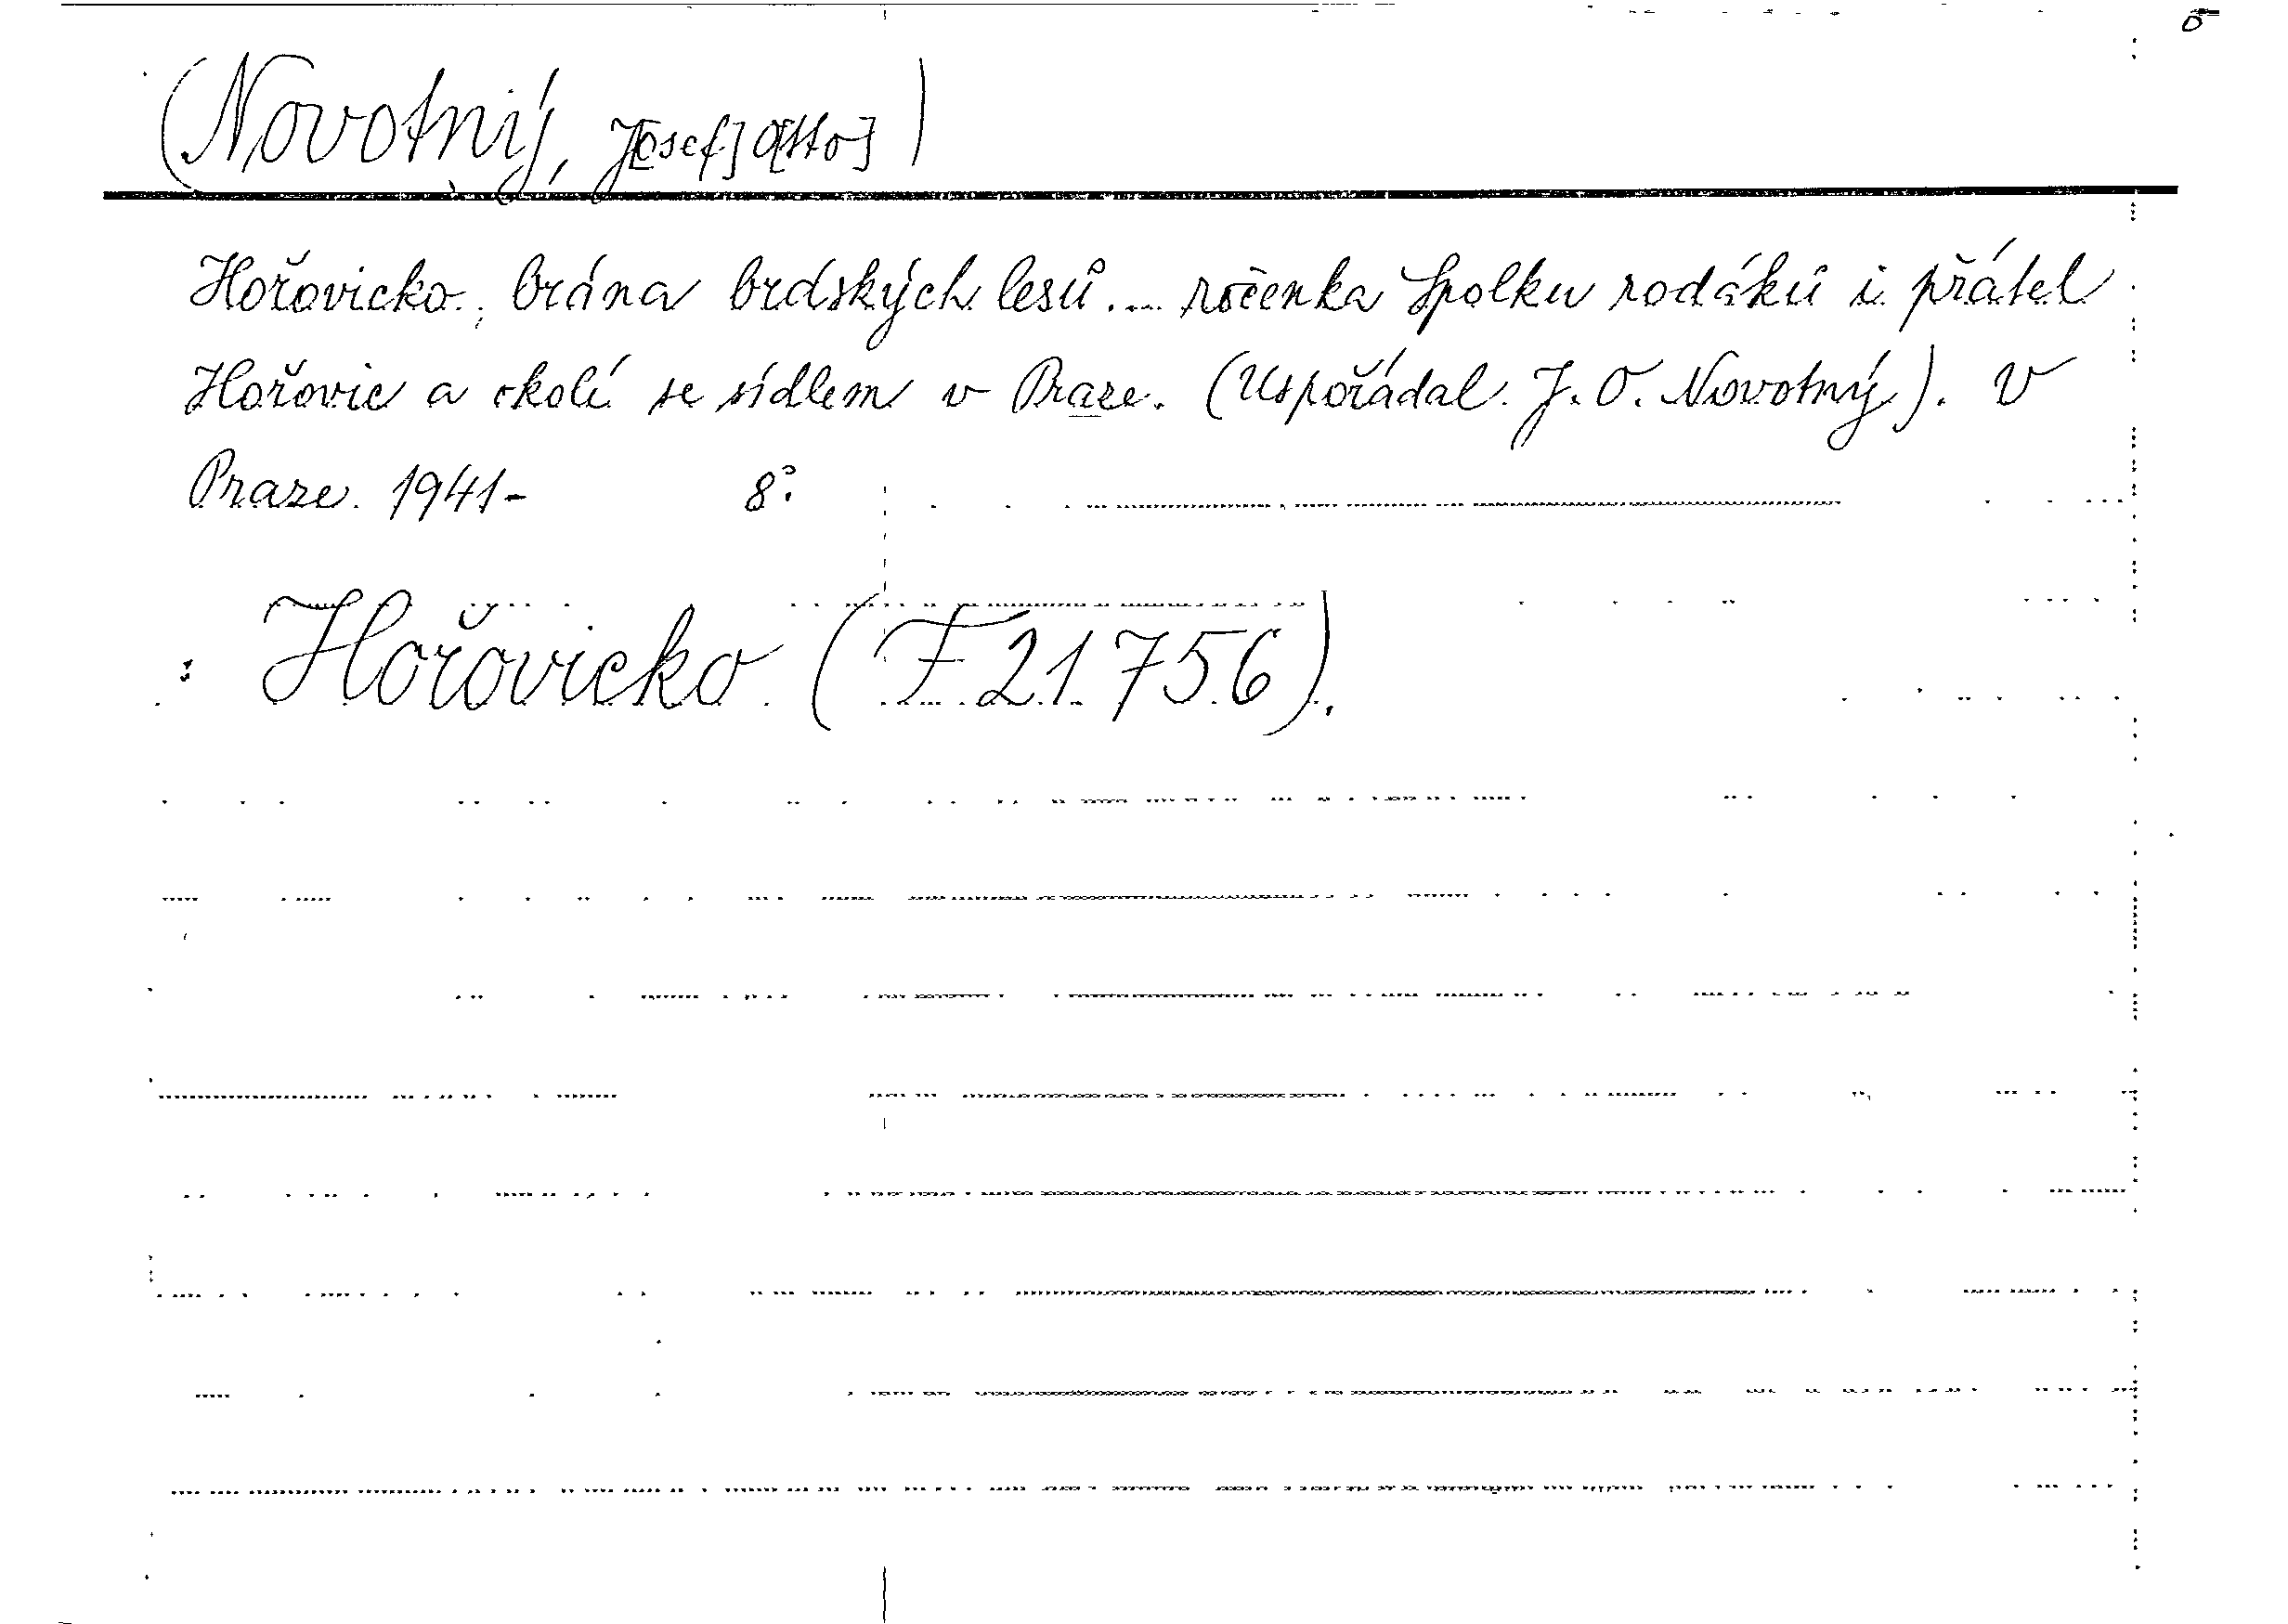 (Novotný, J[osef] O[tto])
Hořovicko, brána brdských lesů.... ročenka Spolku rodáků i přátel
Hořovic a okolí se sídlem v Praze. (Uspořádal J. O. Novotný). V
Praze 1941- 8°.
: Hořovicko (F 21.756).